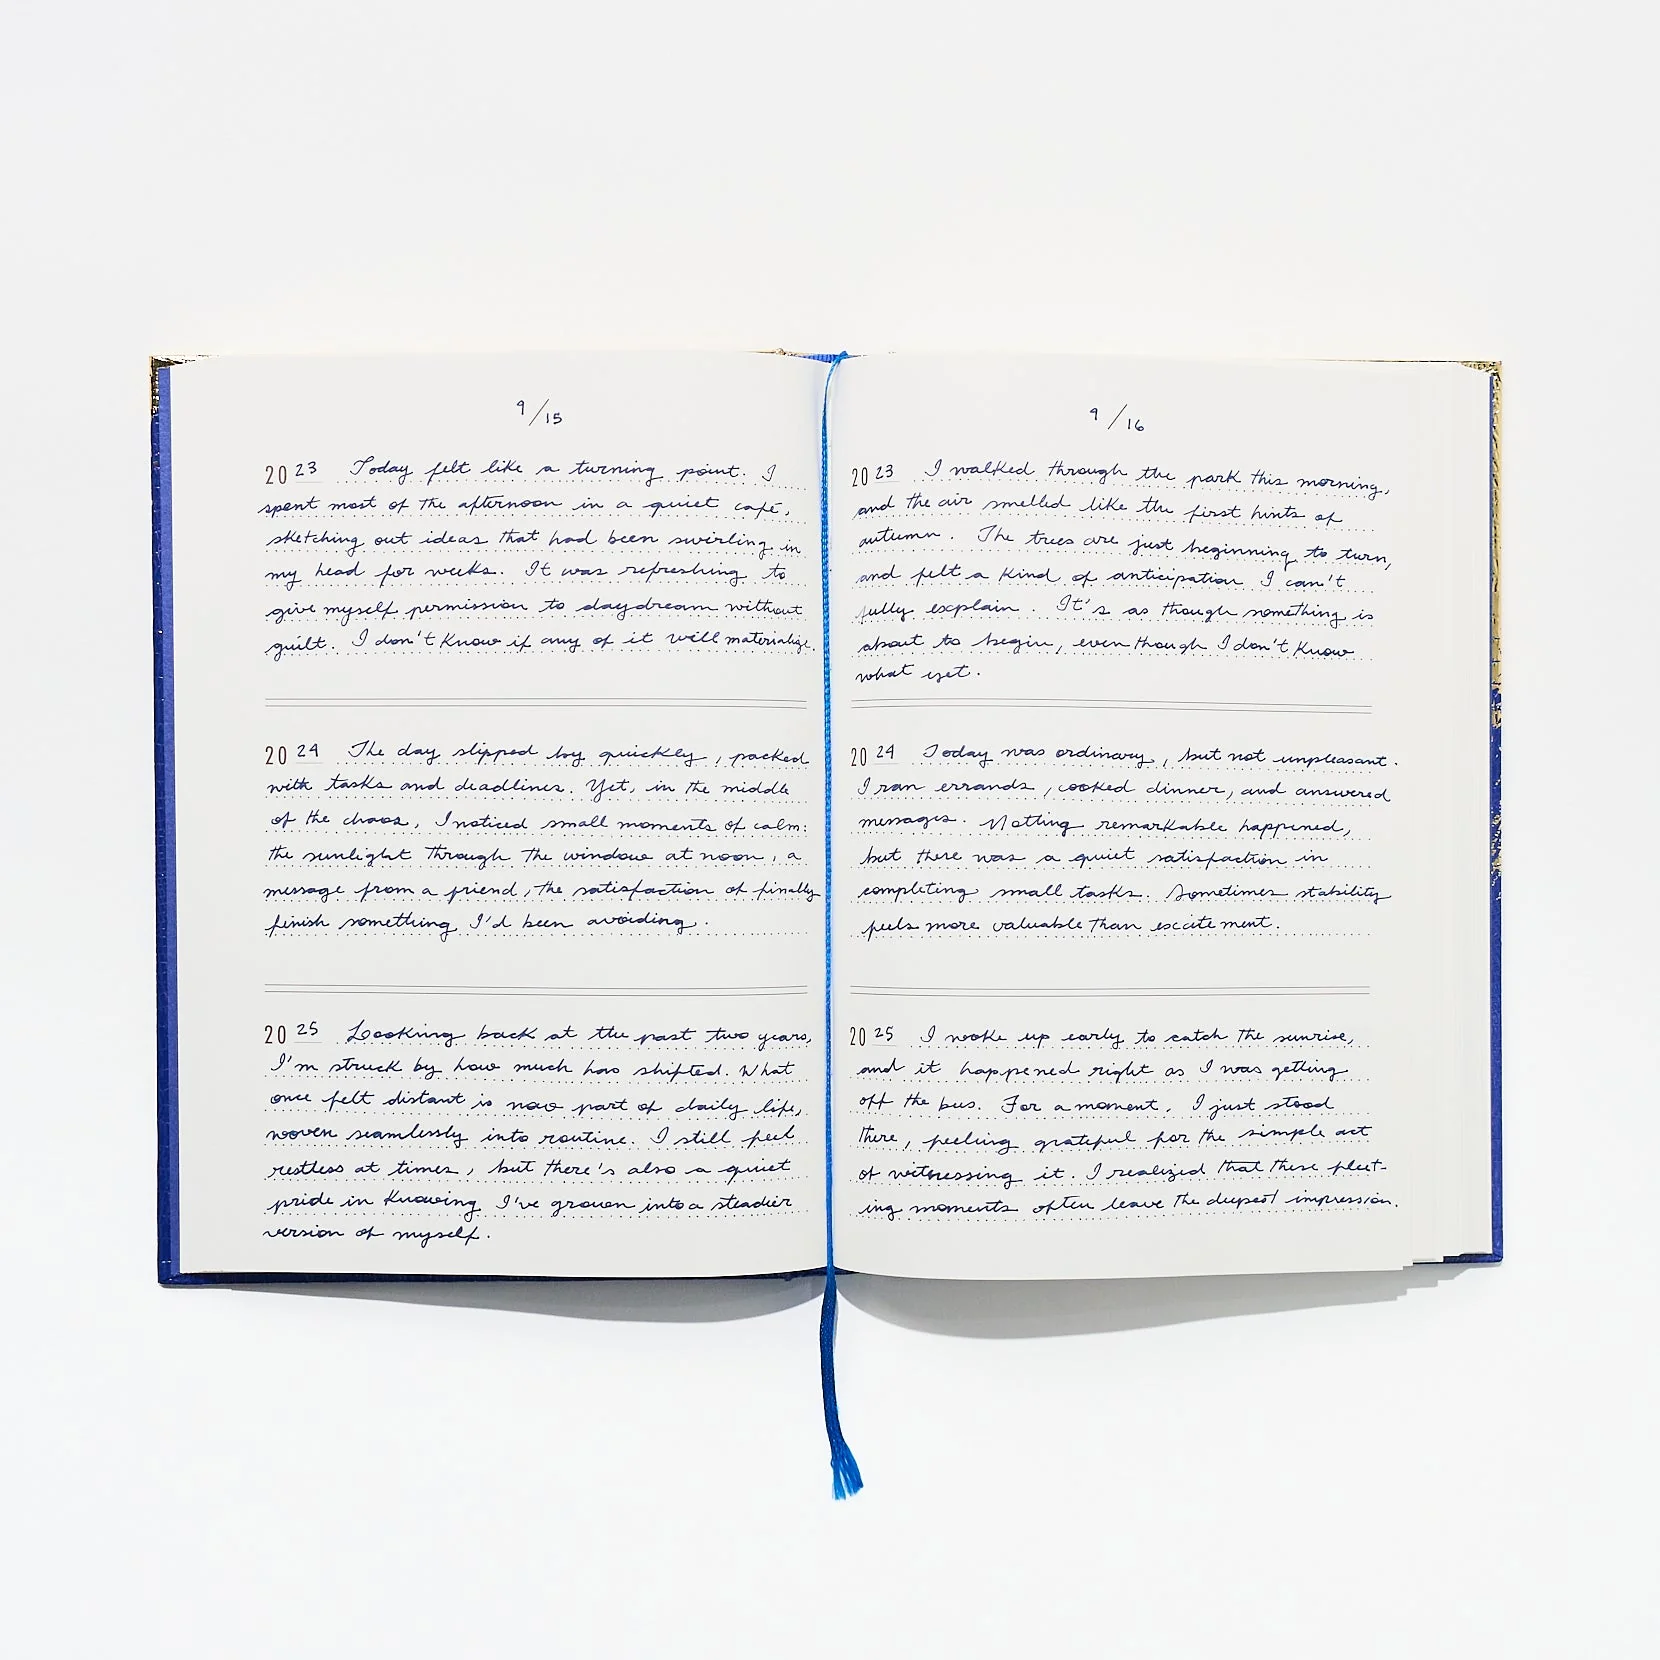 9/15
2023 Today felt like a turning point. I
spent most of the afternoon in a quiet café,
sketching out ideas that had been swirling in
my head for weeks. It was refreshing to
give myself permission to daydream without
guilt. I don't know if any of it will materialize.
2024 The day slipped by quickly, packed
with tasks and deadlines. Yet, in the middle
of the chaos, I noticed small moments of calm:
the sunlight through the window at noon, a
message from a friend, the satisfaction of finally
finish something I'd been avoiding.
2025 Looking back at the past two years,
I'm struck by how much has shifted. What
once felt distant is now part of daily life,
woven seamlessly into routine. I still feel
restless at times, but there's also a quiet
pride in knowing I've grown into a steadier
version of myself.
9/16
2023 I walked through the park this morning,
and the air smelled like the first hints of
autumn. The trees are just beginning to turn,
and felt a kind of anticipation I can't
fully explain. It's as though something is
about to begin, even though I don't know
what yet.
2024 Today was ordinary, but not unpleasant.
I ran errands, cooked dinner, and answered
messages. Notting remarkable happened,
but there was a quiet satisfaction in
completing small tasks. Sometimes stability
feels more valuable than excitement.
2025 I woke up early to catch the sunrise,
and it happened right as I was getting
off the bus. For a moment, I just stood
there, feeling grateful for the simple act
of witnessing it. I realized that these fleet-
ing moments often leave the deepest impression.